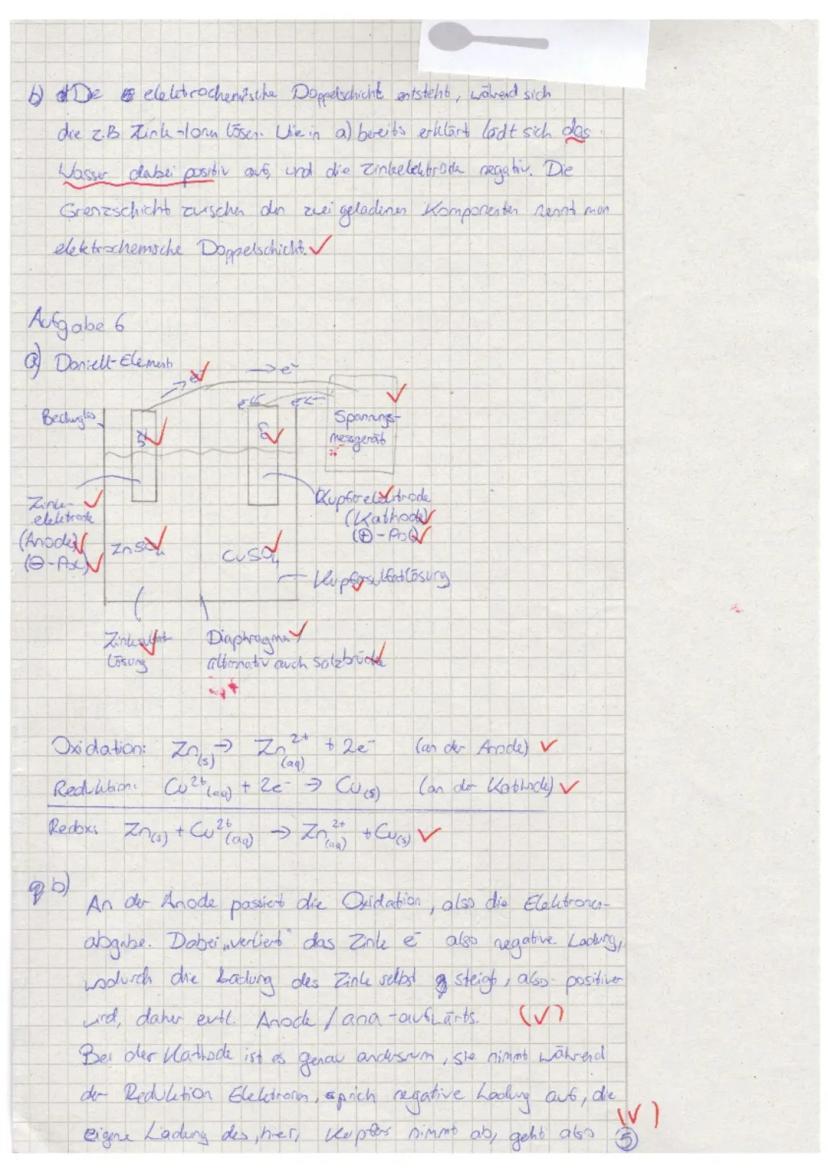 b) De elektrochemische Doppelschicht entsteht, während sich
die z.B Zink-Ionen lösen. Wie in a) bereits erklärt lädt sich das
Wasser dabei positiv auf, und die Zinkelektrode negativ. Die
Grenzschicht zwischen den zwei geladenen Komponenten nennt man
elektrochemische Doppelschicht.
Aufgabe 6
a) Daniell-Element
e⁻ → e⁻
Becherglas
e⁻ e⁻
Spannungs-
messgerät
Zink-
elektrode
(Anode)
(⊖-Pol)
Kupferelektrode
(Kathode)
(⊕-Pol)
ZnSO₄
CuSO₄
Kupfersulfatlösung
Zinksulfat-
lösung
Diaphragma/
alternativ auch Salzbrücke
Oxidation: Zn(s) → Zn²⁺(aq) + 2e⁻ (an der Anode)
Reduktion: Cu²⁺(aq) + 2e⁻ → Cu(s) (an der Kathode)
Redox: Zn(s) + Cu²⁺(aq) → Zn²⁺(aq) + Cu(s)
b)
An der Anode passiert die Oxidation, also die Elektronen-
abgabe. Dabei „verliert" das Zink e⁻ also negative Ladung,
wodurch die Ladung des Zink selbst steigt, also positiver
wird, daher evtl. Anode / ana-aufwärts. (✓)
Bei der Kathode ist es genau andersrum, sie nimmt während
der Reduktion Elektronen, sprich negative Ladung auf, die
eigene Ladung des, hier, Kupfers nimmt ab, geht also (✓)
5